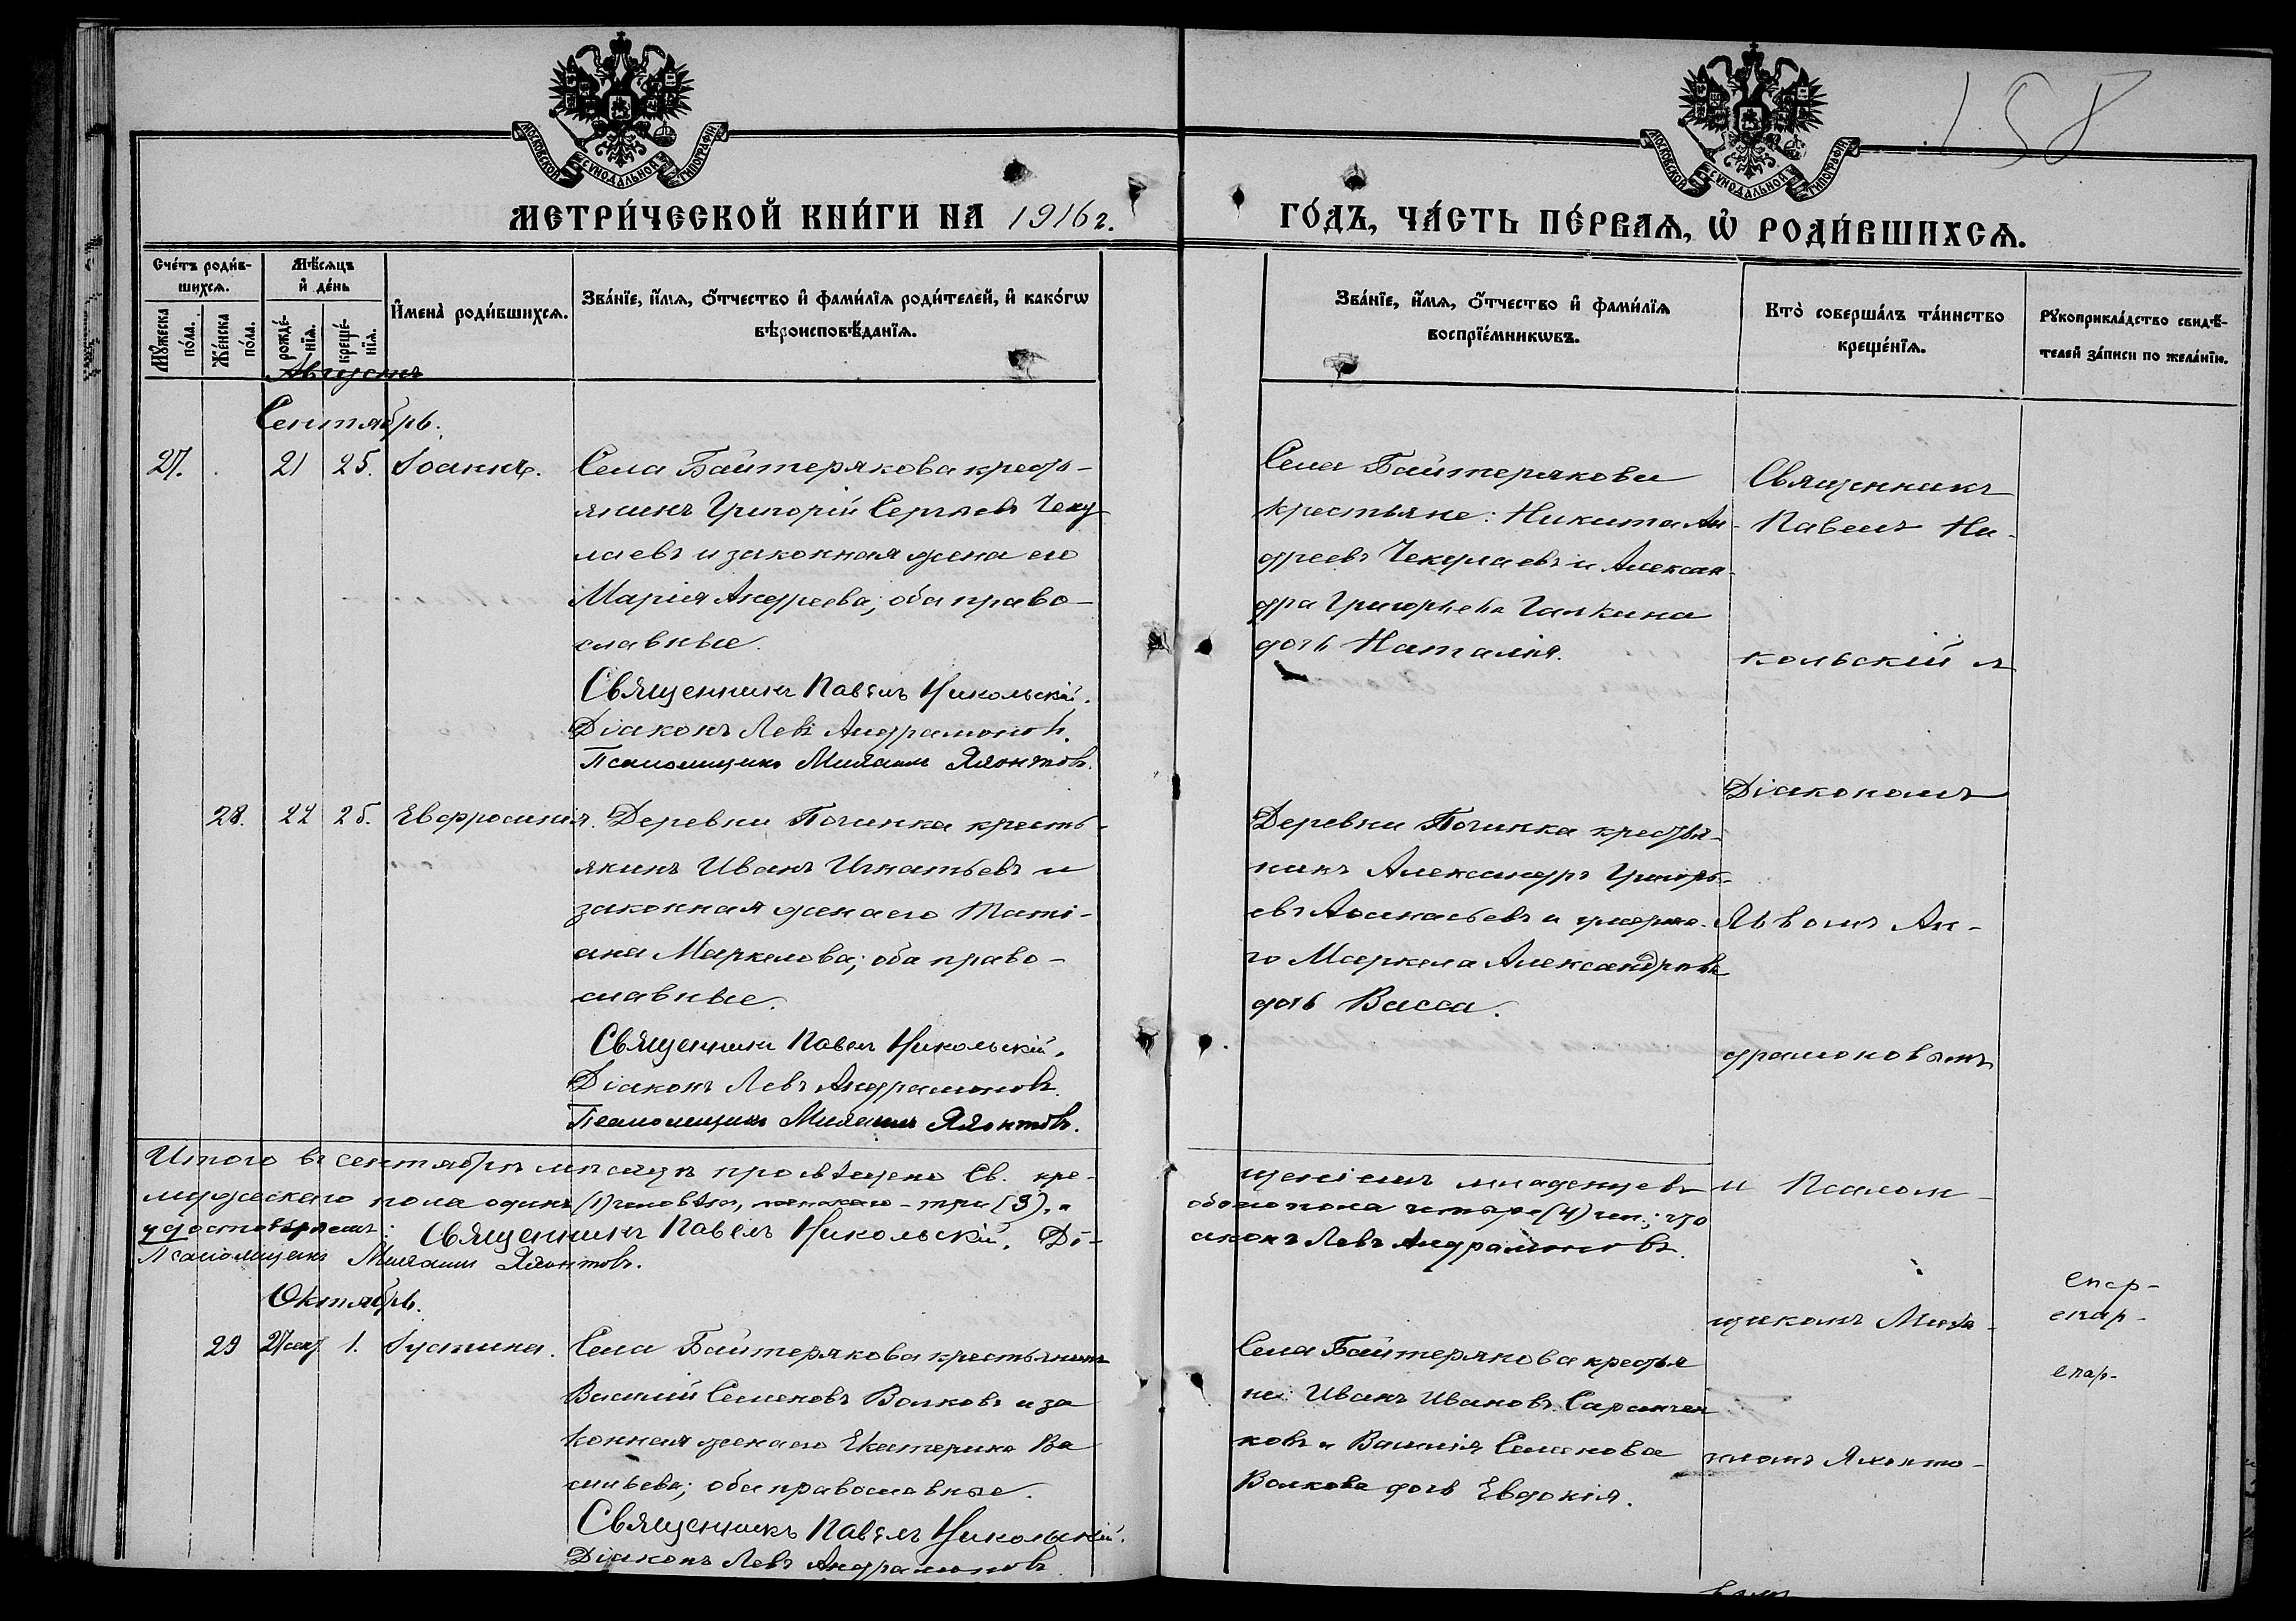 МОСКОВСКОЙ СѴНОДАЛЬНОЙ ТИПОГРАФІИ
МОСКОВСКОЙ СѴНОДАЛЬНОЙ ТИПОГРАФІИ
158
МЕТРИ́ЧЕСКОЙ КНИ́ГИ НА 1916 г.
ГО́ДЪ, ЧА́СТЬ ПЕ́РВАѦ, Ѡ҆ РОДИ́ВШИХСѦ.
Сче́тъ роди́в-
шихсѧ.
Мꙋ́жеска по́ла.
Же́нска по́ла.
Мѣ́сѧцъ
и҆ де́нь
рожде́-
нїѧ.
креще́-
нїѧ.
И҆мена̀ роди́вшихсѧ.
Зва́нїе, и҆́мѧ, ѻ҆́тчество и҆ фамилїѧ роди́телей, и҆ како́гѡ
вѣроисповѣ́данїѧ.
Зва́нїе, и҆́мѧ, ѻ҆́тчество и҆ фами́лїѧ
воспрїе́мникѡвъ.
Кто̀ соверша́лъ та́инство
креще́нїѧ.
Рꙋкоприкла́дство свидѣ́-
телей за́писи по жела́нїю.
Августъ
Сентябрь.
27. 21 25. Іоаннъ.
Села Байтерякова кресть-
янинъ Григорій Сергѣевъ Чеку-
лаевъ и законная жена его
Марія Андреева; оба право-
славные.
Священникъ Павелъ Никольскій.
Діаконъ Левъ Андрамоновъ.
Псаломщикъ Михаилъ Яхонтовъ.
Села Байтерякова
крестьяне: Никита Ан-
дреевъ Чекулаевъ и Алексан-
дра Григорьева Галкина
дочь Наталія.
28. 22 25. Евфросинія.
Деревни Починка кресть-
янинъ Иванъ Игнатьевъ и
законная жена его Таті-
ана Маркелова; оба право-
славные.
Священникъ Павелъ Никольскій.
Діаконъ Левъ Андрамоновъ.
Псаломщикъ Михаилъ Яхонтовъ.
Деревни Починка крестья-
нинъ Александръ Григорь-
евъ Аѳанасьевъ и умерша-
го Маркела Александрова
дочь Васса.
Итого въ сентябрѣ мѣсяцѣ просвѣщено Св. кре-
щеніемъ младенцевъ
мужескаго пола одинъ (1) человѣкъ, женскаго - три (3), а
обоего пола четыре (4) чел.; что
удостовѣряемъ: Священникъ Павелъ Никольскій. Ді-
аконъ Левъ Андрамоновъ.
Псаломщикъ Михаилъ Яхонтовъ.
Октябрь.
29 27 сент 1. Іустина.
Села Байтерякова крестьянинъ
Василій Семеновъ Волковъ и за
конная жена его Екатерина Ва
сильева; оба православные.
Священникъ Павелъ Никольскій.
Діаконъ Левъ Андрамоновъ
Села Байтерякова крестья
не: Иванъ Ивановъ
ковъ и Василія Семенова
Волкова дочь Евдокія.
Священникъ
Павелъ Ни-
кольскій съ
Діакономъ
Львомъ Ан-
драмоновымъ
и Псалом-
щикомъ Миха-
иломъ Яхонто-
вымъ
епар-
епар-
епар-